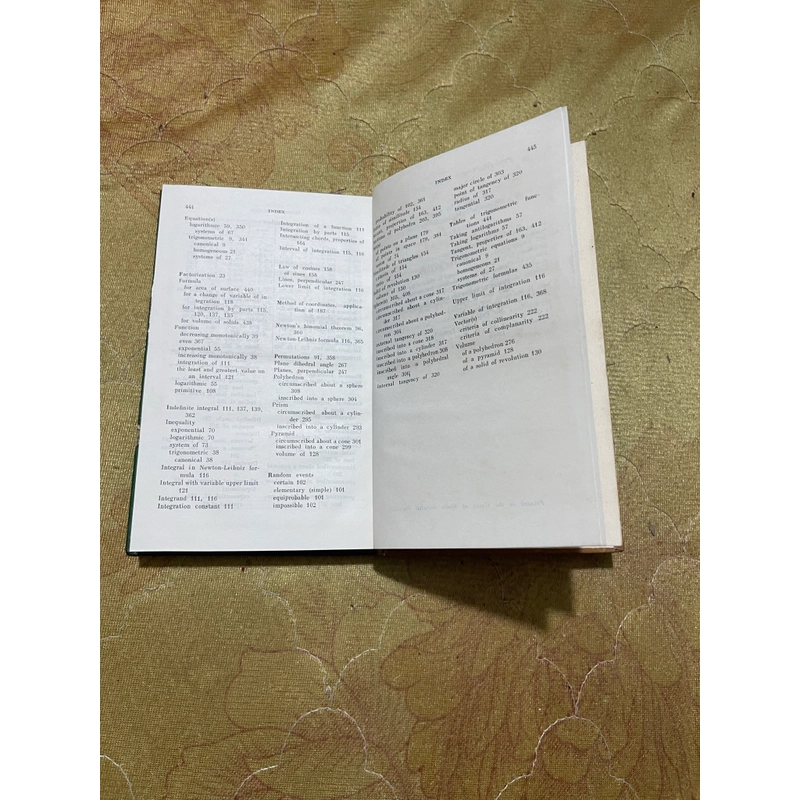 444
INDEX
Equation(s)
logarithmic 59, 350
systems of 67
trigonometric 9, 341
canonical 9
homogeneous 21
systems of 27
Factorization 23
Formula
for area of surface 440
for a change of variable of in-
tegration 118
for integration by parts 115,
120, 137, 155
for volume of solids 438
Function
decreasing monotonically 39
even 367
exponential 55
increasing monotonically 38
integration of 111
the least and greatest value on
an interval 121
logarithmic 55
primitive 108
Indefinite integral 111, 137, 139,
362
Inequality
exponential 70
logarithmic 70
system of 73
trigonometric 38
canonical 38
Integral in Newton-Leibniz for-
mula 116
Integral with variable upper limit
121
Integrand 111, 116
Integration constant 111
Integration of a function 111
Integration by parts 115
Intersecting chords, properties of
164
Interval of integration 115, 116
Law of cosines 158
of sines 158
Lines, perpendicular 247
Lower limit of integration 116
Method of coordinates, applica-
tion of 187
Newton's binomial theorem 96,
360
Newton-Leibniz formula 116, 365
Permutations 91, 358
Plane dihedral angle 267
Planes, perpendicular 247
Polyhedron
circumscribed about a sphere
308
inscribed into a sphere 304
Prism
circumscribed about a cylin-
der 295
inscribed into a cylinder 293
Pyramid
circumscribed about a cone 301
inscribed into a cone 299
volume of 128
Random events
certain 102
elementary (simple) 101
equiprobable 101
impossible 102
445
INDEX
probability of 102, 361
of amplitude 154
properties of 163, 412
of polyhedra 263, 395
on a plane 179
in space 179, 184
of 74
of triangles 154
of 154
of 154
of revolution 130
of 130
305, 408
circumscribed about a cone 317
circumscribed about a cylin-
der 317
circumscribed about a polyhed-
ron 304
external tangency of 320
inscribed into a cone 318
inscribed into a cylinder 317
inscribed into a polyhedron 308
inscribed into a polyhedral
angle
internal tangency of 320
major circle of 303
point of tangency of 320
radius of 317
tangential 320
Tables of trigonometric func-
tions 441
Taking antilogarithms 57
Taking logarithms 57
Tangents, properties of 163, 412
Trigonometric equations 9
canonical 9
homogeneous 21
systems of 27
Trigonometric formulas 435
Upper limit of integration 116
Variable of integration 116, 365
Vector(s)
criteria of collinearity 222
criteria of complanarity 222
Volume
of a polyhedron 276
of a pyramid 128
of a solid of revolution 130